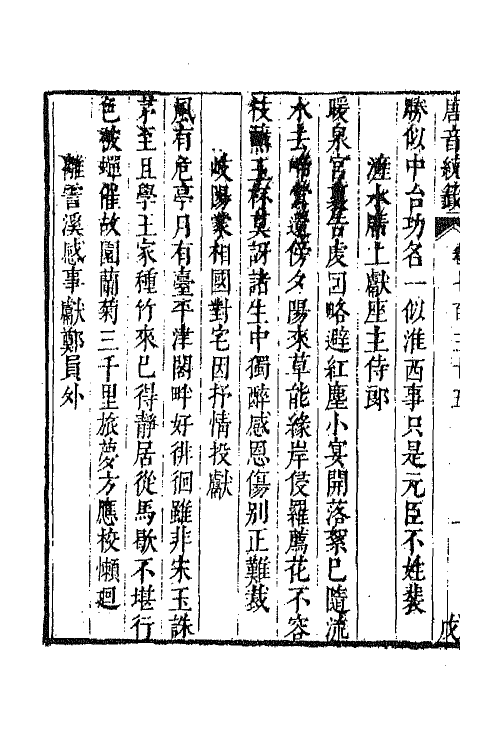 唐音統籖 卷七百三十五 一 戊
勝似中台功名一似淮西事只是元臣不姓裴
滻水席上獻座主侍郎
暖泉宮裏告虔回略避紅塵小宴開落絮已隨流
水去啼鶯還傍夕陽來草能緣岸侵羅薦花不容
枝蘸玉杯莫訝諸生中獨醉感恩傷别正難裁
岐陽蒙相國對宅因抒情投獻
風有危亭月有臺平津閣畔好徘徊雖非宋玉誅
茅至且學王家種竹來已得靜居從馬歇不堪行
色被蟬催故園蘭菊三千里旅夢方應校懶廻
離霅溪感事獻鄭員外